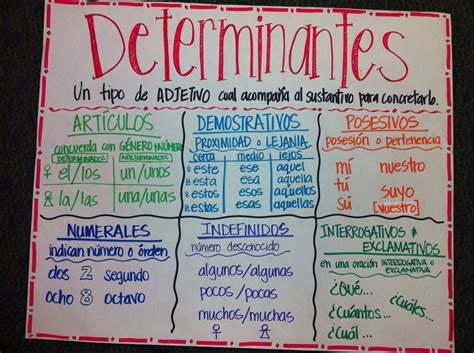 Determinantes
Un tipo de ADJETIVO cual acompaña al sustantivo para concretarlo.
ARTÍCULOS
concuerda con GÉNERO/NÚMERO
DETERMINADOS INDETERMINADOS
el/los un/unos
la/las una/unas
DEMOSTRATIVOS
PROXIMIDAD o LEJANIA
cerca medio lejos
este ese aquel
esta esa aquella
estos esos aquellos
estas esas aquellas
POSESIVOS
posesión o pertenencia
mí nuestro
tú suyo
sú [vuestro]
NUMERALES
indican número o órden
dos 2 segundo
ocho 8 octavo
INDEFINIDOS
número desconocido
algunos/algunas
pocos/pocas
muchos/muchas
INTERROGATIVOS &
EXCLAMATIVOS
en una oración INTERROGATIVA o
EXCLAMATIVA
¿Qué...
¿Cuáles...
¿Cuántos...
¿Cuál...